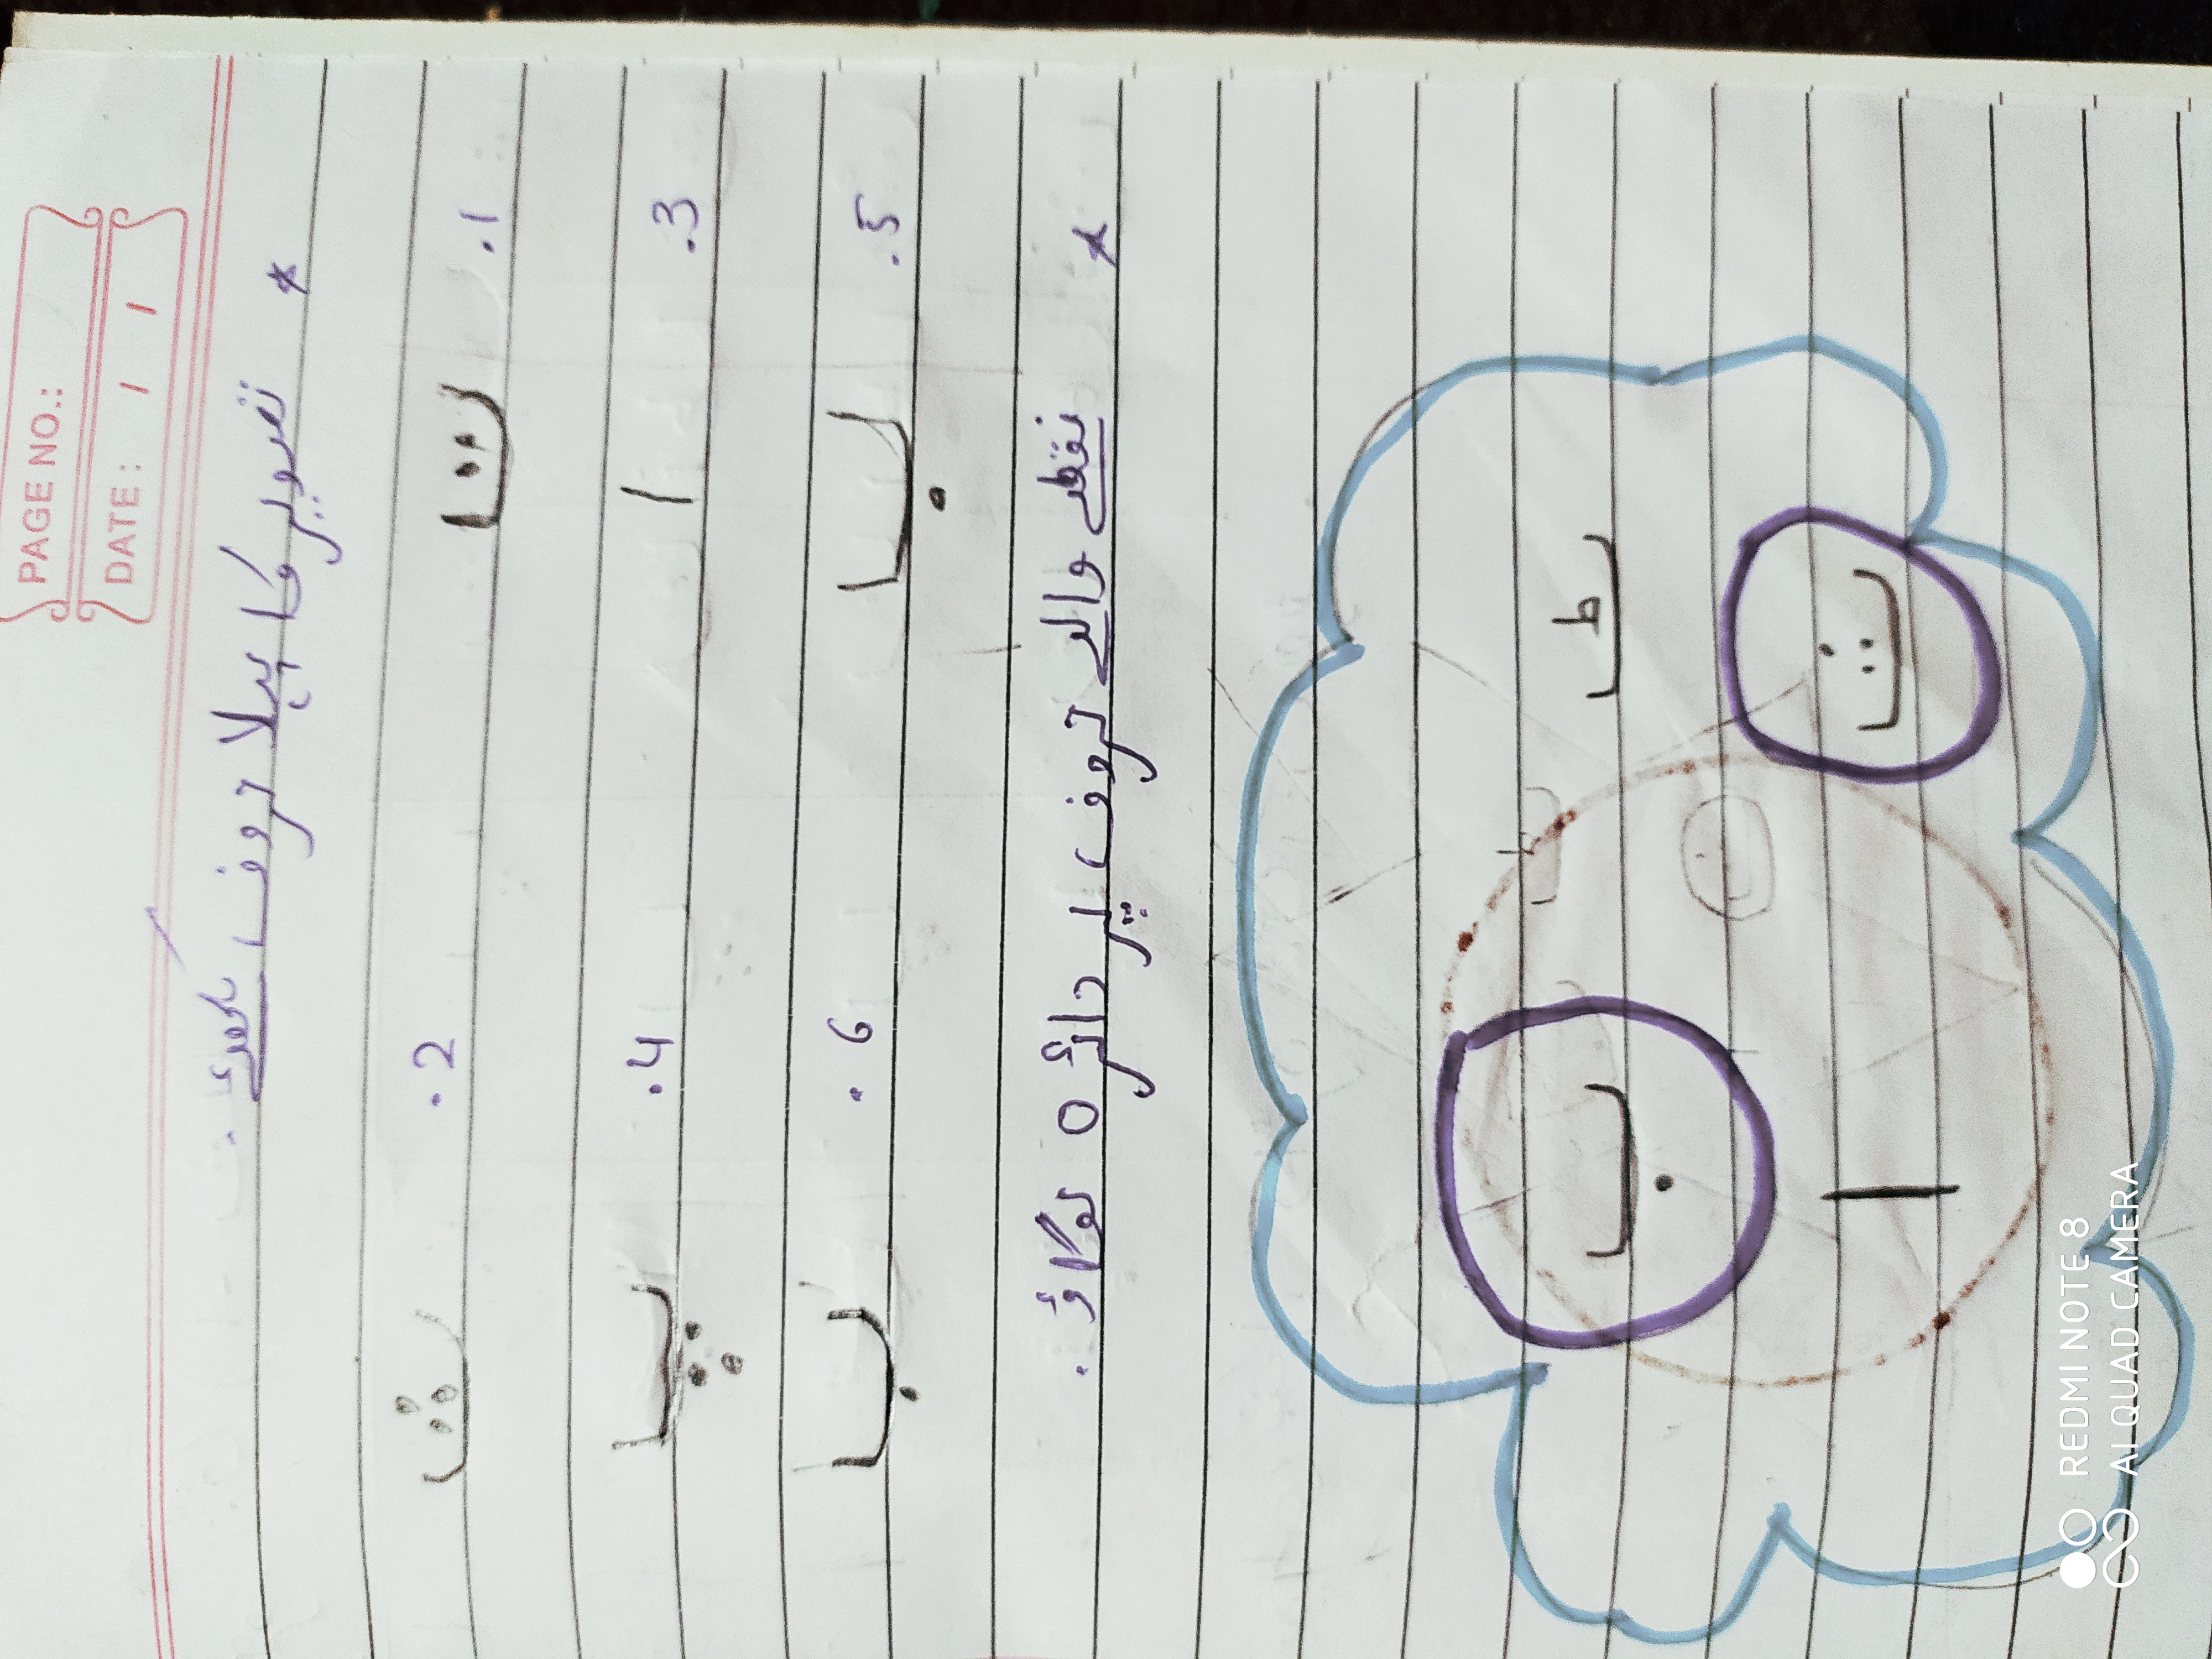 PAGE NO.:
DATE: / /
* تصویر کا پہلا حروف لکھئے.
.1 ت .2 ث
.3 ا .4 پ
.5 ب .6 ب
* نقطے والے حروف پر دائرہ لگاؤ.
ٹ ب
ث ا
REDMI NOTE 8
AI QUAD CAMERA